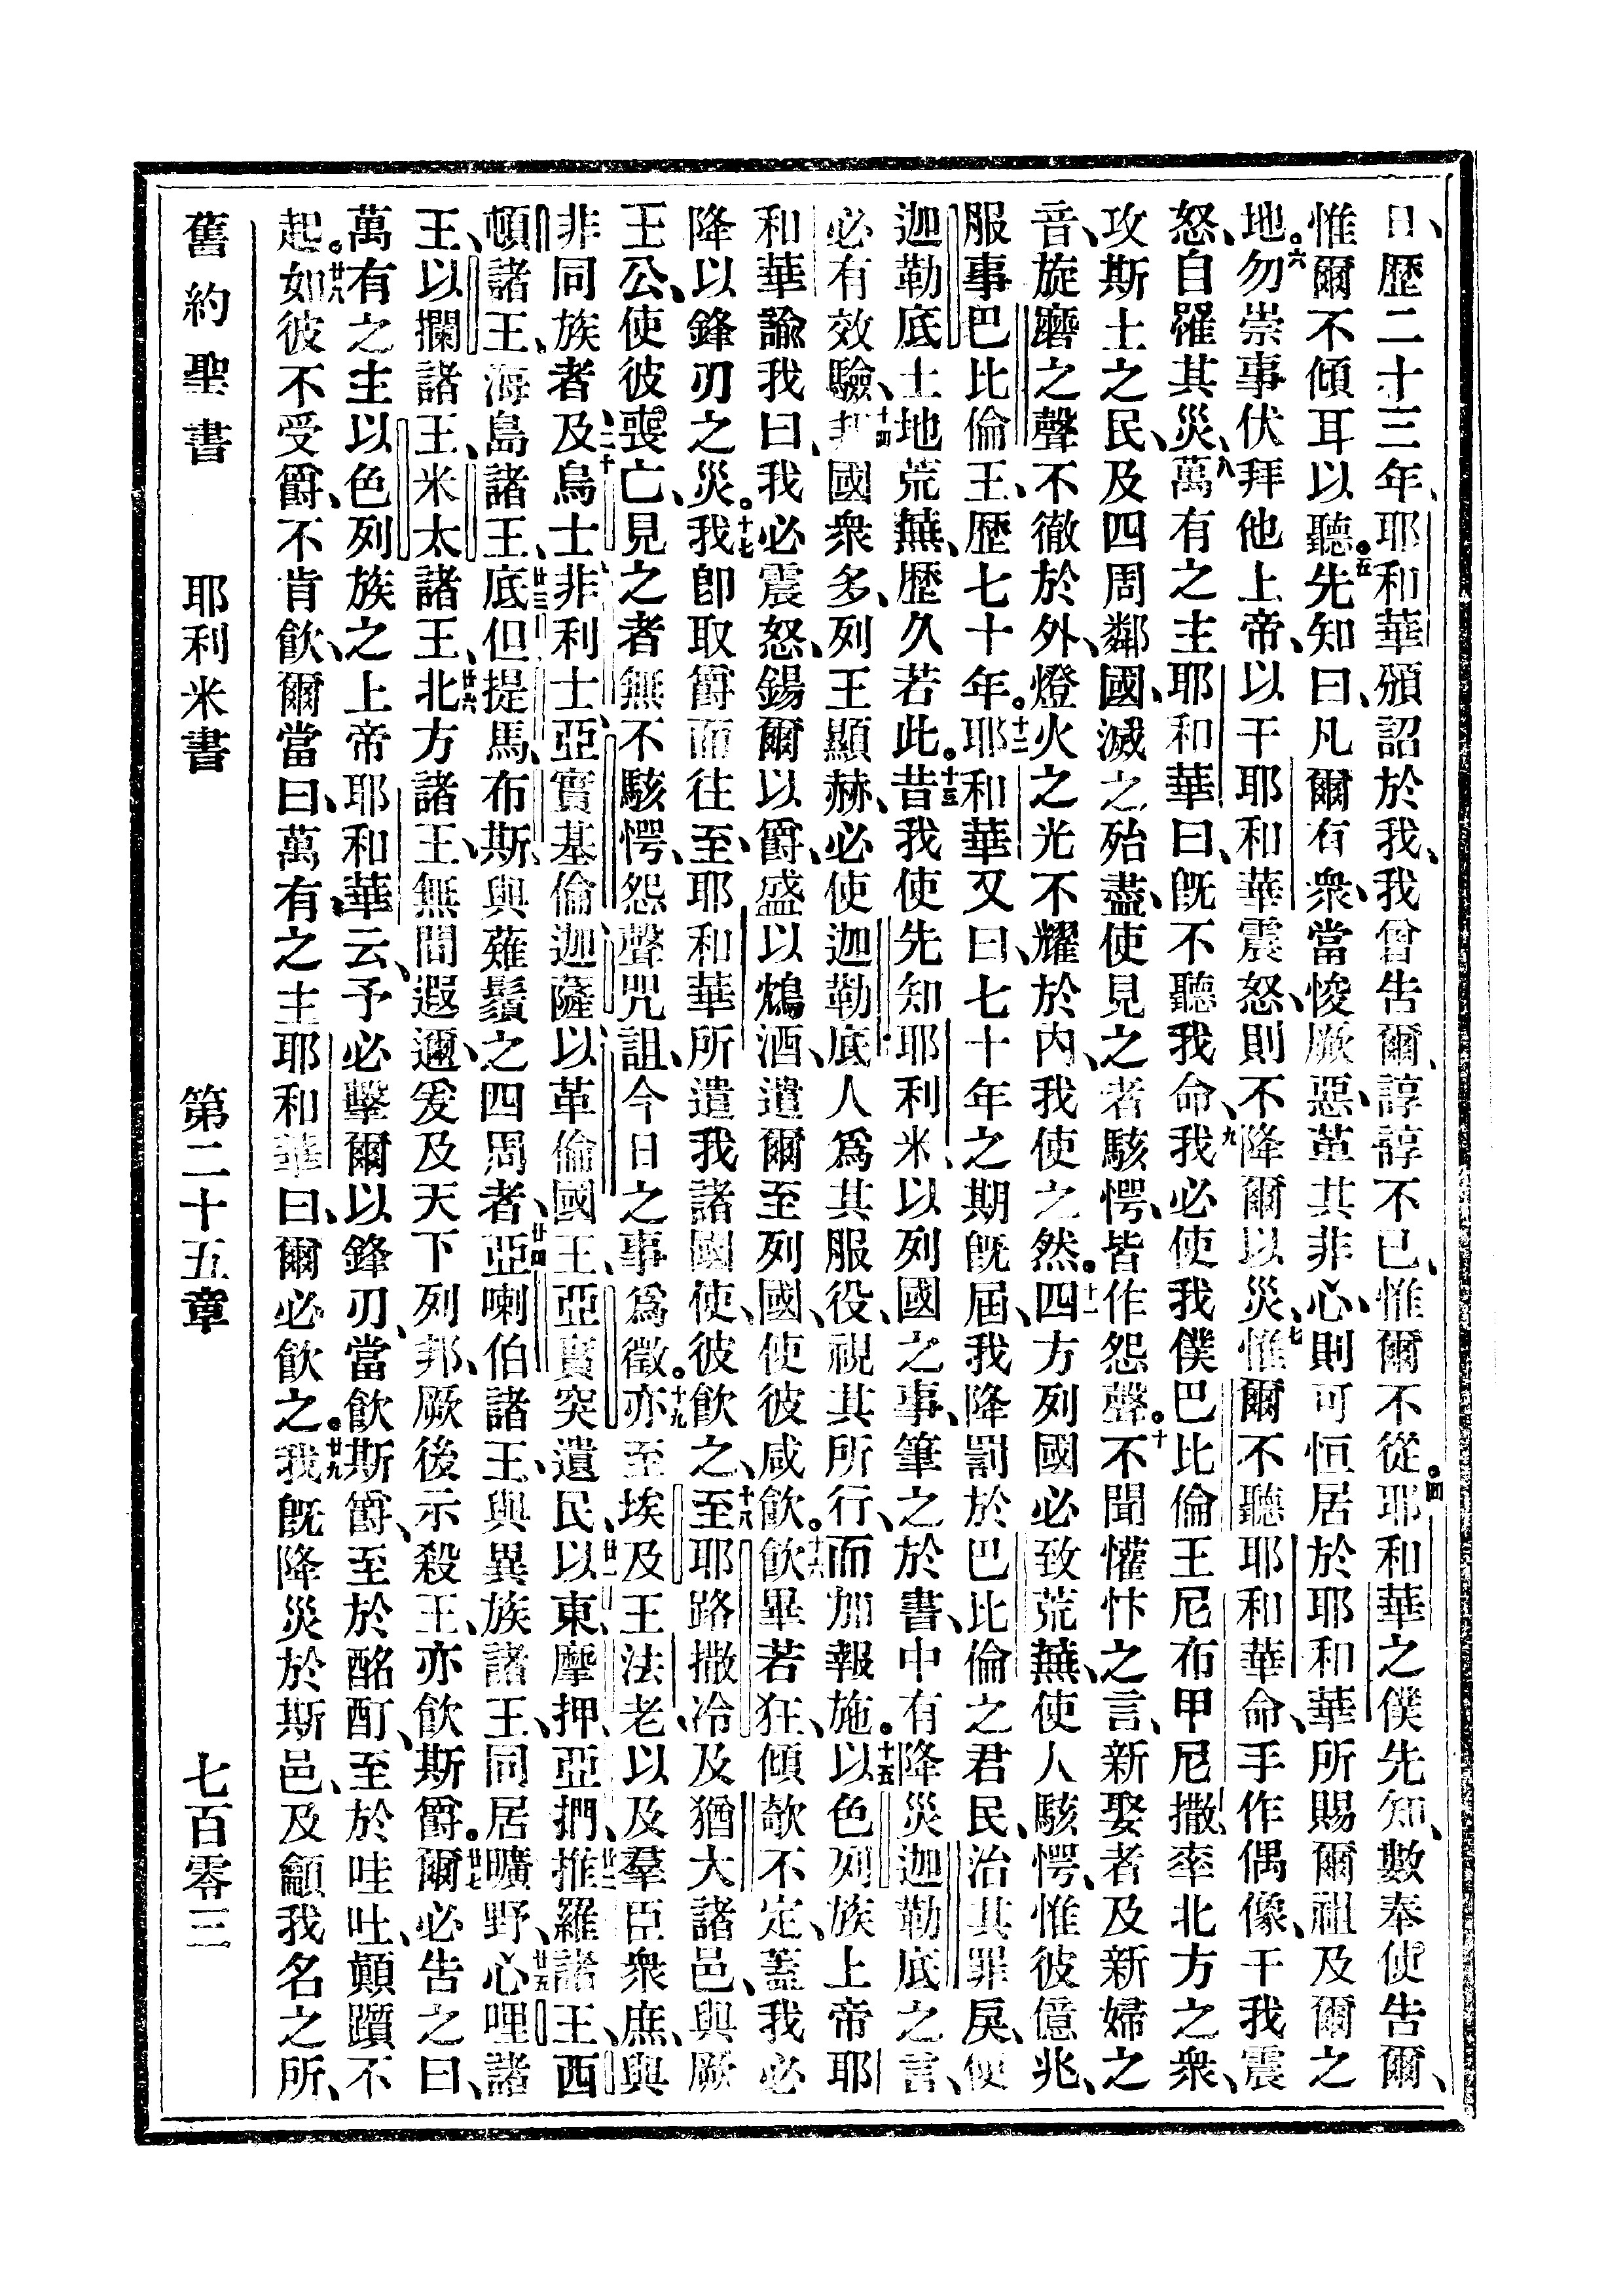 日、歷二十三年、耶和華頒詔於我、我曾告爾、諄諄不已、惟爾不從。四耶和華之僕先知、數奉使告爾、
惟爾不傾耳以聽。五先知曰、凡爾有衆、當悛厥惡、革其非心、則可恒居於耶和華所賜爾祖及爾之
地。六勿崇事伏拜他上帝、以干耶和華震怒、則不降爾以災、七惟爾不聽耶和華命、手作偶像、干我震
怒、自罹其災、八萬有之主耶和華曰、旣不聽我命、九我必使我僕巴比倫王尼布甲尼撒、率北方之衆、
攻斯土之民、及四周鄰國、滅之殆盡、使見之者駭愕、皆作怨聲。十不聞懽忭之言、新娶者及新婦之
音、旋磨之聲不徹於外、燈火之光不耀於內、我使之然。十一四方列國必致荒蕪、使人駭愕、惟彼億兆、
服事巴比倫王、歷七十年。十二耶和華又曰、七十年之期旣屆、我降罰於巴比倫之君民、治其罪戾、使
迦勒底土地荒蕪、歷久若此。十三昔我使先知耶利米、以列國之事、筆之於書、中有降災迦勒底之言、
必有效驗、十四我國衆多、列王顯赫、必使迦勒底人爲其服役、視其所行、而加報施。十五以色列族上帝耶
和華諭我曰、我必震怒、錫爾以爵、盛以鴆酒、遣爾至列國、使彼咸飲。十六飲畢若狂、傾欹不定、蓋我必
降以鋒刃之災。十七我卽取爵而往、至耶和華所遣我諸國、使彼飲之、十八至耶路撒冷及猶大諸邑、與厥
王公、使彼喪亡、見之者無不駭愕、怨聲咒詛、今日之事爲徵。十九亦至埃及王法老、以及羣臣衆庶、與
非同族者、二十及烏士、非利士、亞實基倫、迦薩、以革倫國王、亞實突遺民、廿一以東、摩押、亞捫、廿二推羅諸王、西
頓諸王、海島諸王、廿三底但、提馬、布斯、與薙鬚之四周者、廿四亞喇伯諸王、與異族諸王、同居曠野、廿五心哩諸
王、以攔諸王、米太諸王、廿六北方諸王、無間遐邇、爰及天下列邦、厥後示殺王、亦飲斯爵。廿七爾必告之曰、
萬有之主以色列族之上帝耶和華云、予必擊爾以鋒刃、當飲斯爵、至於酩酊、至於哇吐、顚躓不
起。廿八如彼不受爵、不肯飲、爾當曰、萬有之主耶和華曰、爾必飲之。廿九我旣降災於斯邑、及龥我名之所、
舊約聖書 耶利米書 第二十五章 七百零三